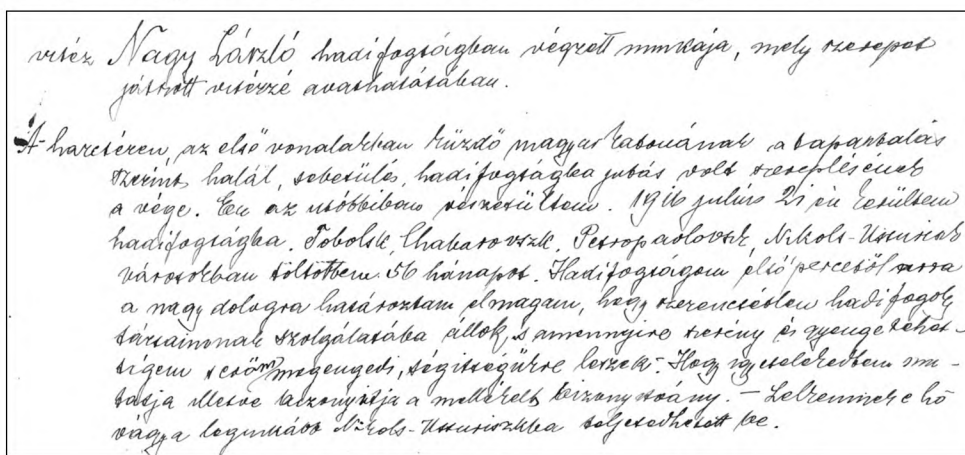 vitéz Nagy László hadifogságban végzett munkája, mely szerepet
játszott vitézzé avathatásában.
A harctéren, az első vonalakban küzdő magyar katonának a tapasztalás
szerint, halál, sebesülés, hadifogságba jutás volt szereplésének
a vége. Én az utóbbiban részesültem. 1916 július 21 én kerültem
hadifogságba. Tobolsk, Chabarovszk, Petropavlovsk, Nikols-Ussurisk
városokban töltöttem 56 hónapot. Hadifogságom első percétől arra
a nagy dologra határoztam el magam, hogy szerencsétlen hadifogoly
társaimnak szolgálatába állok, s amennyire szerény és gyenge tehet-
ségem s erőm megengedi, segítségükre leszek. Hogy így cselekedtem mu-
tatja illetve bizonyítja a mellékelt bizonyítvány. – Lelkemnek e hő
vágya leginkább Nikols-Ussuriszkba teljesedhetett be.